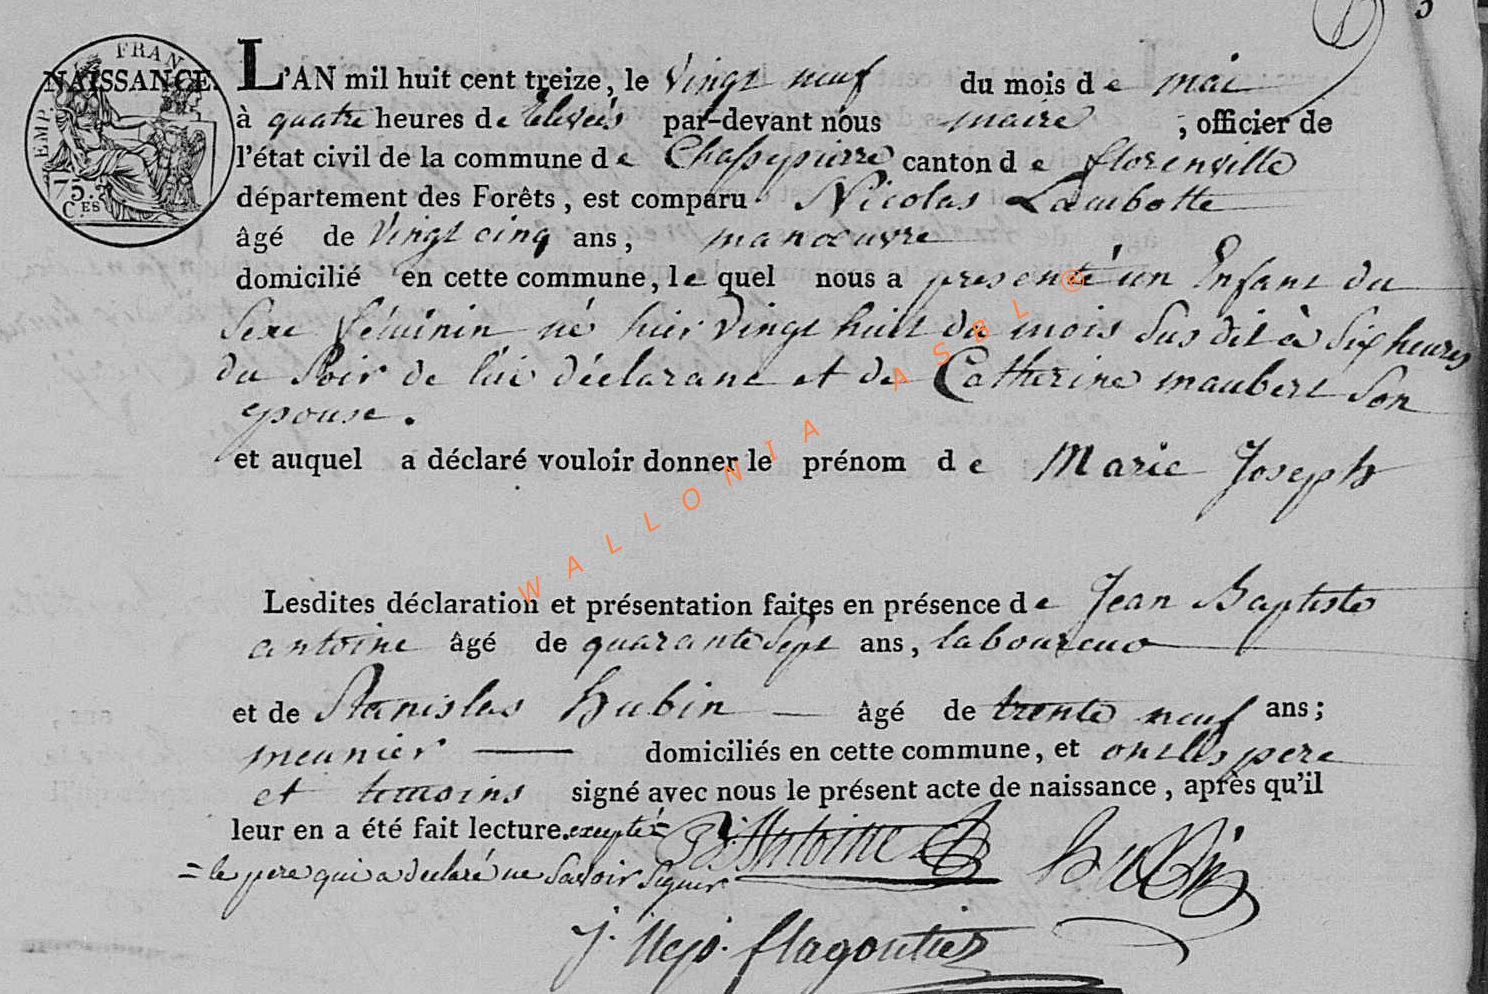 5
FRAN
EMP.
75.
CES
NAISSANCE. L'AN mil huit cent treize, le Vingt neuf du mois de mai
à quatre heures de relevéé par-devant nous maire, officier de
l'état civil de la commune de Chassepierre canton de florenville
département des Forêts, est comparu Nicolas Lambotte
âgé de Vingt cinq ans, manoeuvre
domicilié en cette commune, le quel nous a presenté un Enfant du
Sexe féminin né hier Vingt huit du mois Sus dit à Six heures
du Soir de lui déclarant et de Catherine maubert Son
epouse.
et auquel a déclaré vouloir donner le prénom de Marie Joseph
Lesdites déclaration et présentation faites en présence de Jean Baptiste
antoine âgé de quarante Sept ans, laboureur
et de Stanislas hubin âgé de trente neuf ans;
meunier domiciliés en cette commune, et ont les pere
et temoins signé avec nous le présent acte de naissance, après qu'il
leur en a été fait lecture. excepté =
= le pere qui a declaré ne Savoir Signer
Antoine
hubin
J. Nep. flagontier
WALLONIA ASBL ®